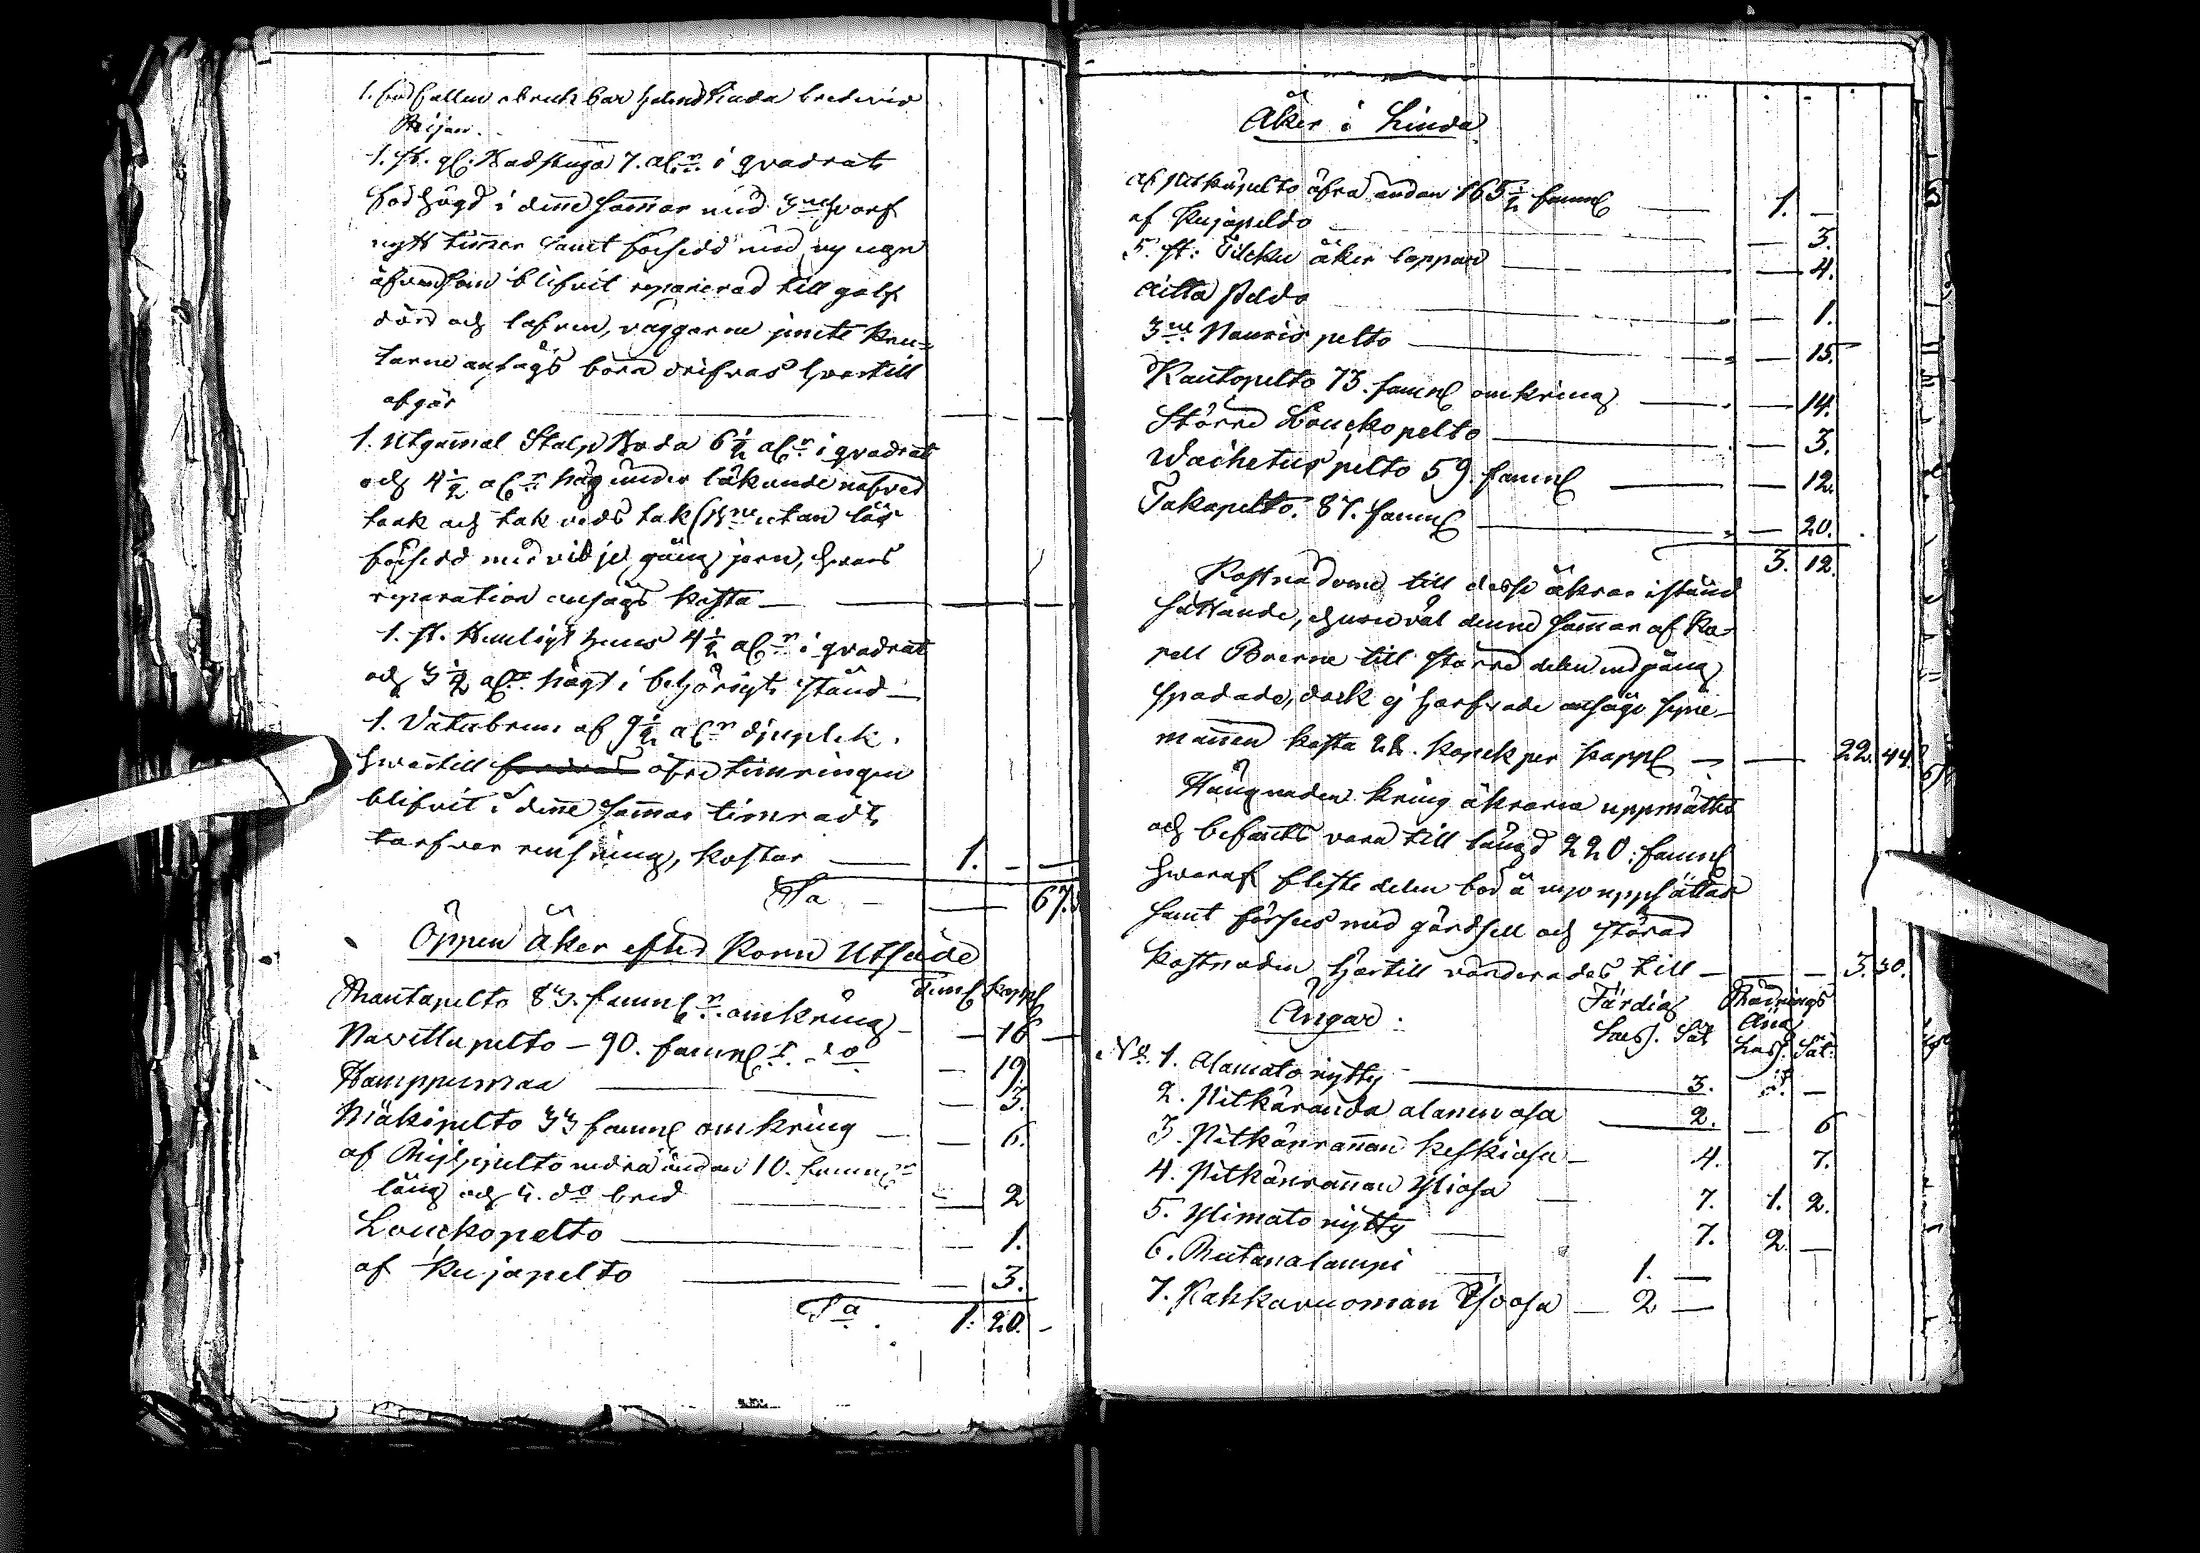 1. förfallen obrukbar halmskiuda bredevid
Reijan.
1. st. gl. Badstuga 7. aln: i qvadrat
förhögd i denne sommar med 3ne hvarf
nytt timer samt försedd med ny ugn
äfvensom blifvit reparerad till golf
dörr och lafven, väggarne jemte knu-
tarne ansågs böra drifvas hvartill
afgår
1. Utgammal Stalp Boda 6½ aln: i qvadrat
och 4½ aln: hög under läkande näfver
taak och tak veds tak utan lås
försedd med vidje gång jern, hvars
reparation ansågs kosta —
1. st. Hemligt huus 4½ aln: i qvadrat
och 3½ aln: högt i behörigt stånd —
1. Vatubrun af 9½ aln: djuplek.
hvartill fordras öfre timringen
blifvit i denne sommar timradt,
tarfvar rensning, kostar — 1. — —
Sa — 67.
Öppen åker efter Korn Utsäde
Tunl Kappl
Rantapelto 83. famnl:r omkring — 16 —
Navettapelto — 90. famnl:r do — 19.
Hamppumaa — 3.
Mäkipelto 33 famnl omkring — 6.
af Riihipelto nedra ändan 10. famnl:r
lång och 4. do bred — 2
Louckopelto — 1.
af Kujapelto — 3.
Sa. 1. 20. —
Åker i Linda
af Pitkäpelto öfra ändan 165½ famnl — 1. —
af Kujapeldo — 3.
5. st: Tilcku åker lappar — 4.
Aitta peldo — 1.
3ne Nauris pelto — 15.
Kantopelto 73. famnl omkring — 14.
Större Louckopelto — 3.
Wachetus pelto 59 famnl — 12.
Takapelto. 87. famnl — 20.
3. 12.
Kostnaderne till desse åkrar istånd
sättande, ehuruväl denne sommar af Ka-
rell Boerne till större delen en gång
spadade, dock ej harfvade ansågo syne-
männen kosta 22. kopek per kappl — 22. 44.
Hängnaden kring åkrarna uppmättes
och befants vara till längd 220: famnl
hwaraf fleste delen bör å nyo uppsättas
samt förses med gärdsell och störar
Kostnaden härtill värderades till — 3. 30.
Ängar.
Färdig Rödnings
Äng
Lass. Såt Lass. Såt:
No. 1. Alamatonijtty — 3. —
2. Pitkäranda alanenosa — 2. — 6
3. Pitkänrannan keskiosa — 4. 7.
4. Pitkänrannan Yliosa — 7. 1. 2.
5. Ylimatonijtty — 7. 2. —
6. Ruitanalampi — 1. —
7. Kahkavuoman Isoosa — 2 —